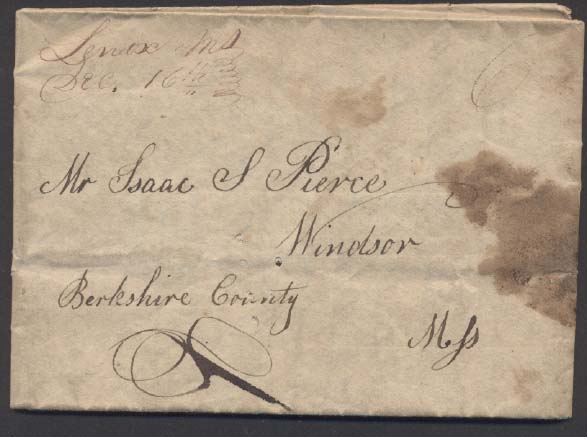 Lenox Ms
Dec. 16th
6
Mr Isaac S Pierce
Windsor
Berkshire County
Mss